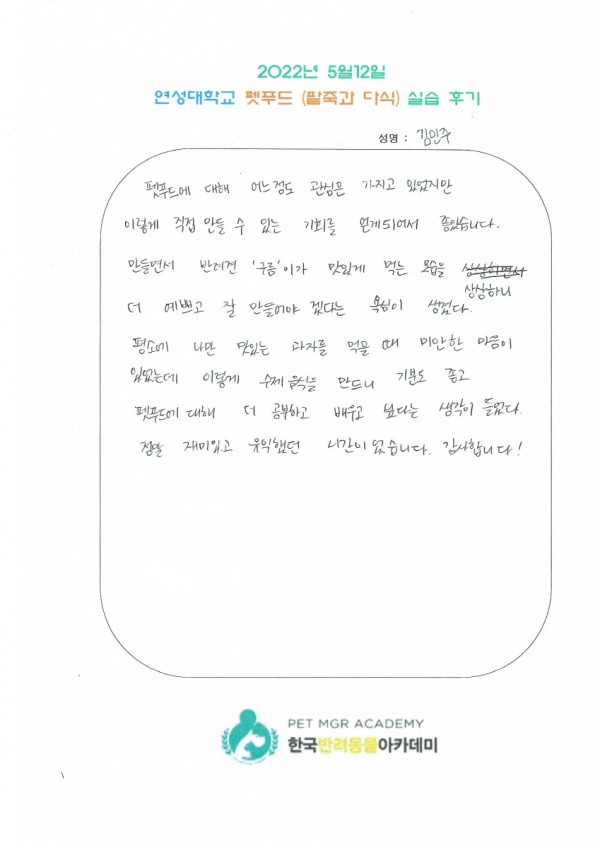 2022년 5월12일
연성대학교 펫푸드 (팥죽과 다식) 실습 후기
성명 : 김민주
펫푸드에 대해 어느정도 관심은 가지고 있었지만
이렇게 직접 만들 수 있는 기회를 얻게되어서 좋았습니다.
만들면서 반려견 '구름'이가 맛있게 먹는 모습을 상상하면서
상상하니
더 예쁘고 잘 만들어야 겠다는 욕심이 생겼다.
평소에 나만 맛있는 과자를 먹을 때 미안한 마음이
있었는데 이렇게 수제 음식을 만드니 기분도 좋고
펫푸드에 대해 더 공부하고 배우고 싶다는 생각이 들었다.
정말 재미있고 유익했던 시간이었습니다. 감사합니다!
PET MGR ACADEMY
한국반려동물아카데미